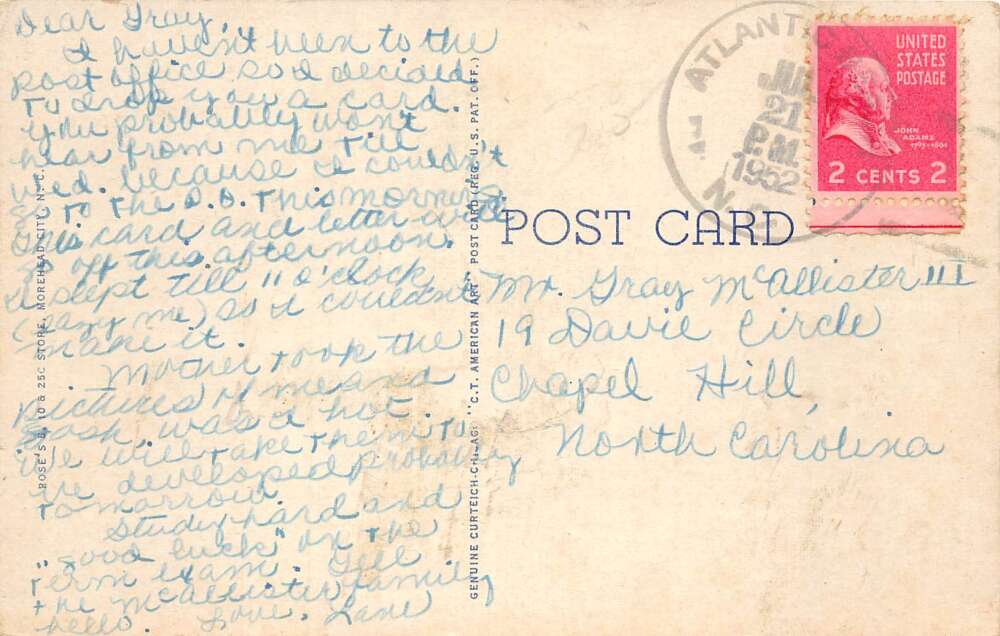 Dear Gray,
I haven't been to the
post office so I decided
to drop you a card.
You probably won't
hear from me till
wed. because I couldn't
go to the P.O. this morning.
This card and letter will
go off this afternoon.
I slept till 11 o'clock
(lazy me) so I couldn't
make it.
Mother took the
pictures of me and
gosh, was I hot.
We will take them to
be developed probably
tomorrow.
Study hard and
"good luck" on the
term exam. Tell
the McAllister family
hello. Love, Lane
ROSE'S 5, 10 & 25C STORE, MOREHEAD CITY, N. C.
GENUINE CURTEICH-CHICAGO "C.T. AMERICAN ART" POST CARD (REG. U.S. PAT. OFF.)
ATLANTIC
21
P.M.
1952
N.C.
UNITED
STATES
POSTAGE
JOHN
ADAMS
1797-1801
2 CENTS 2
POST CARD
Mr. Gray McAllister III
19 Davie Circle
Chapel Hill,
North Carolina